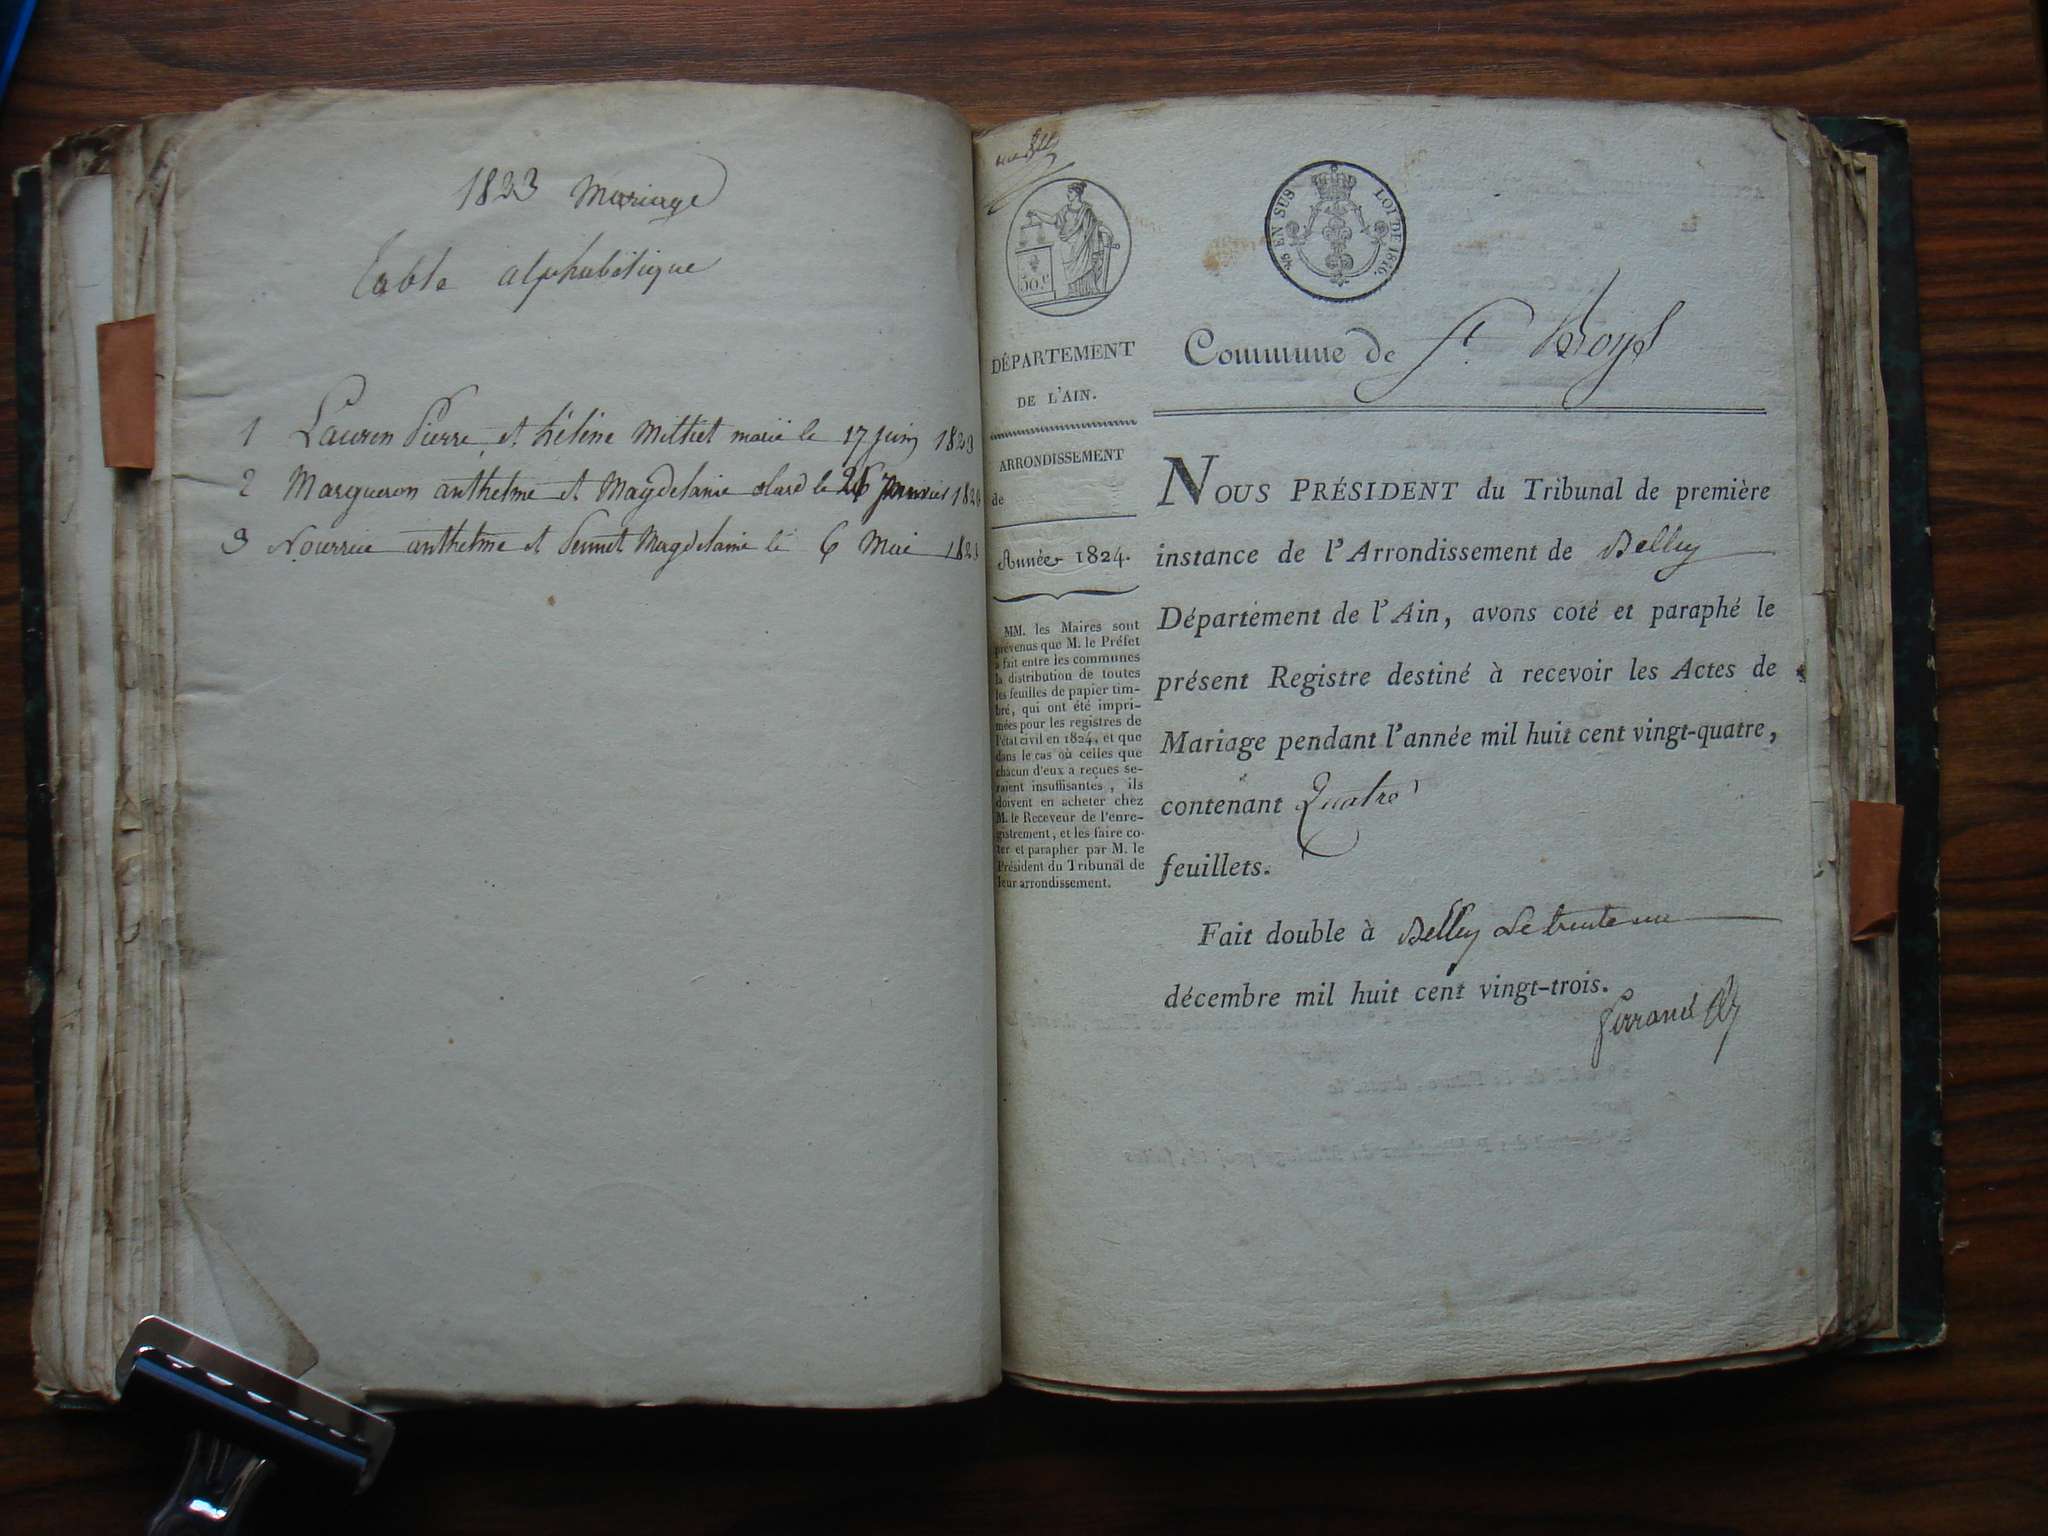 1823 Mariage
table alphabétique
1 Lauren Pierre et hélène Milliet marié le 17 juin 1823
2 Margueron anthelme et Magdelaine le 26 janvier
3 anthelme et Magdelaine le 6 Mai 1823
50.c
25 EN SUS LOI DE 1816.
DÉPARTEMENT
DE L'AIN.
ARRONDISSEMENT
de
Année 1824.
MM. les Maires sont
prévenus que M. le Préfet
a fait entre les communes
la distribution de toutes
les feuilles de papier tim-
bré, qui ont été impri-
mées pour les registres de
l'état civil en 1824, et que
dans le cas où celles que
chacun d'eux a reçues se-
raient insuffisantes, ils
doivent en acheter chez
M. le Receveur de l'enre-
gistrement, et les faire co-
ter et parapher par M. le
Président du Tribunal de
leur arrondissement.
Commune de St.
NOUS PRÉSIDENT du Tribunal de première
instance de l'Arrondissement de Belley
Département de l'Ain, avons coté et paraphé le
présent Registre destiné à recevoir les Actes de
Mariage pendant l'année mil huit cent vingt-quatre,
contenant Quatre
feuillets.
Fait double à Belley Le trente un
décembre mil huit cent vingt-trois.